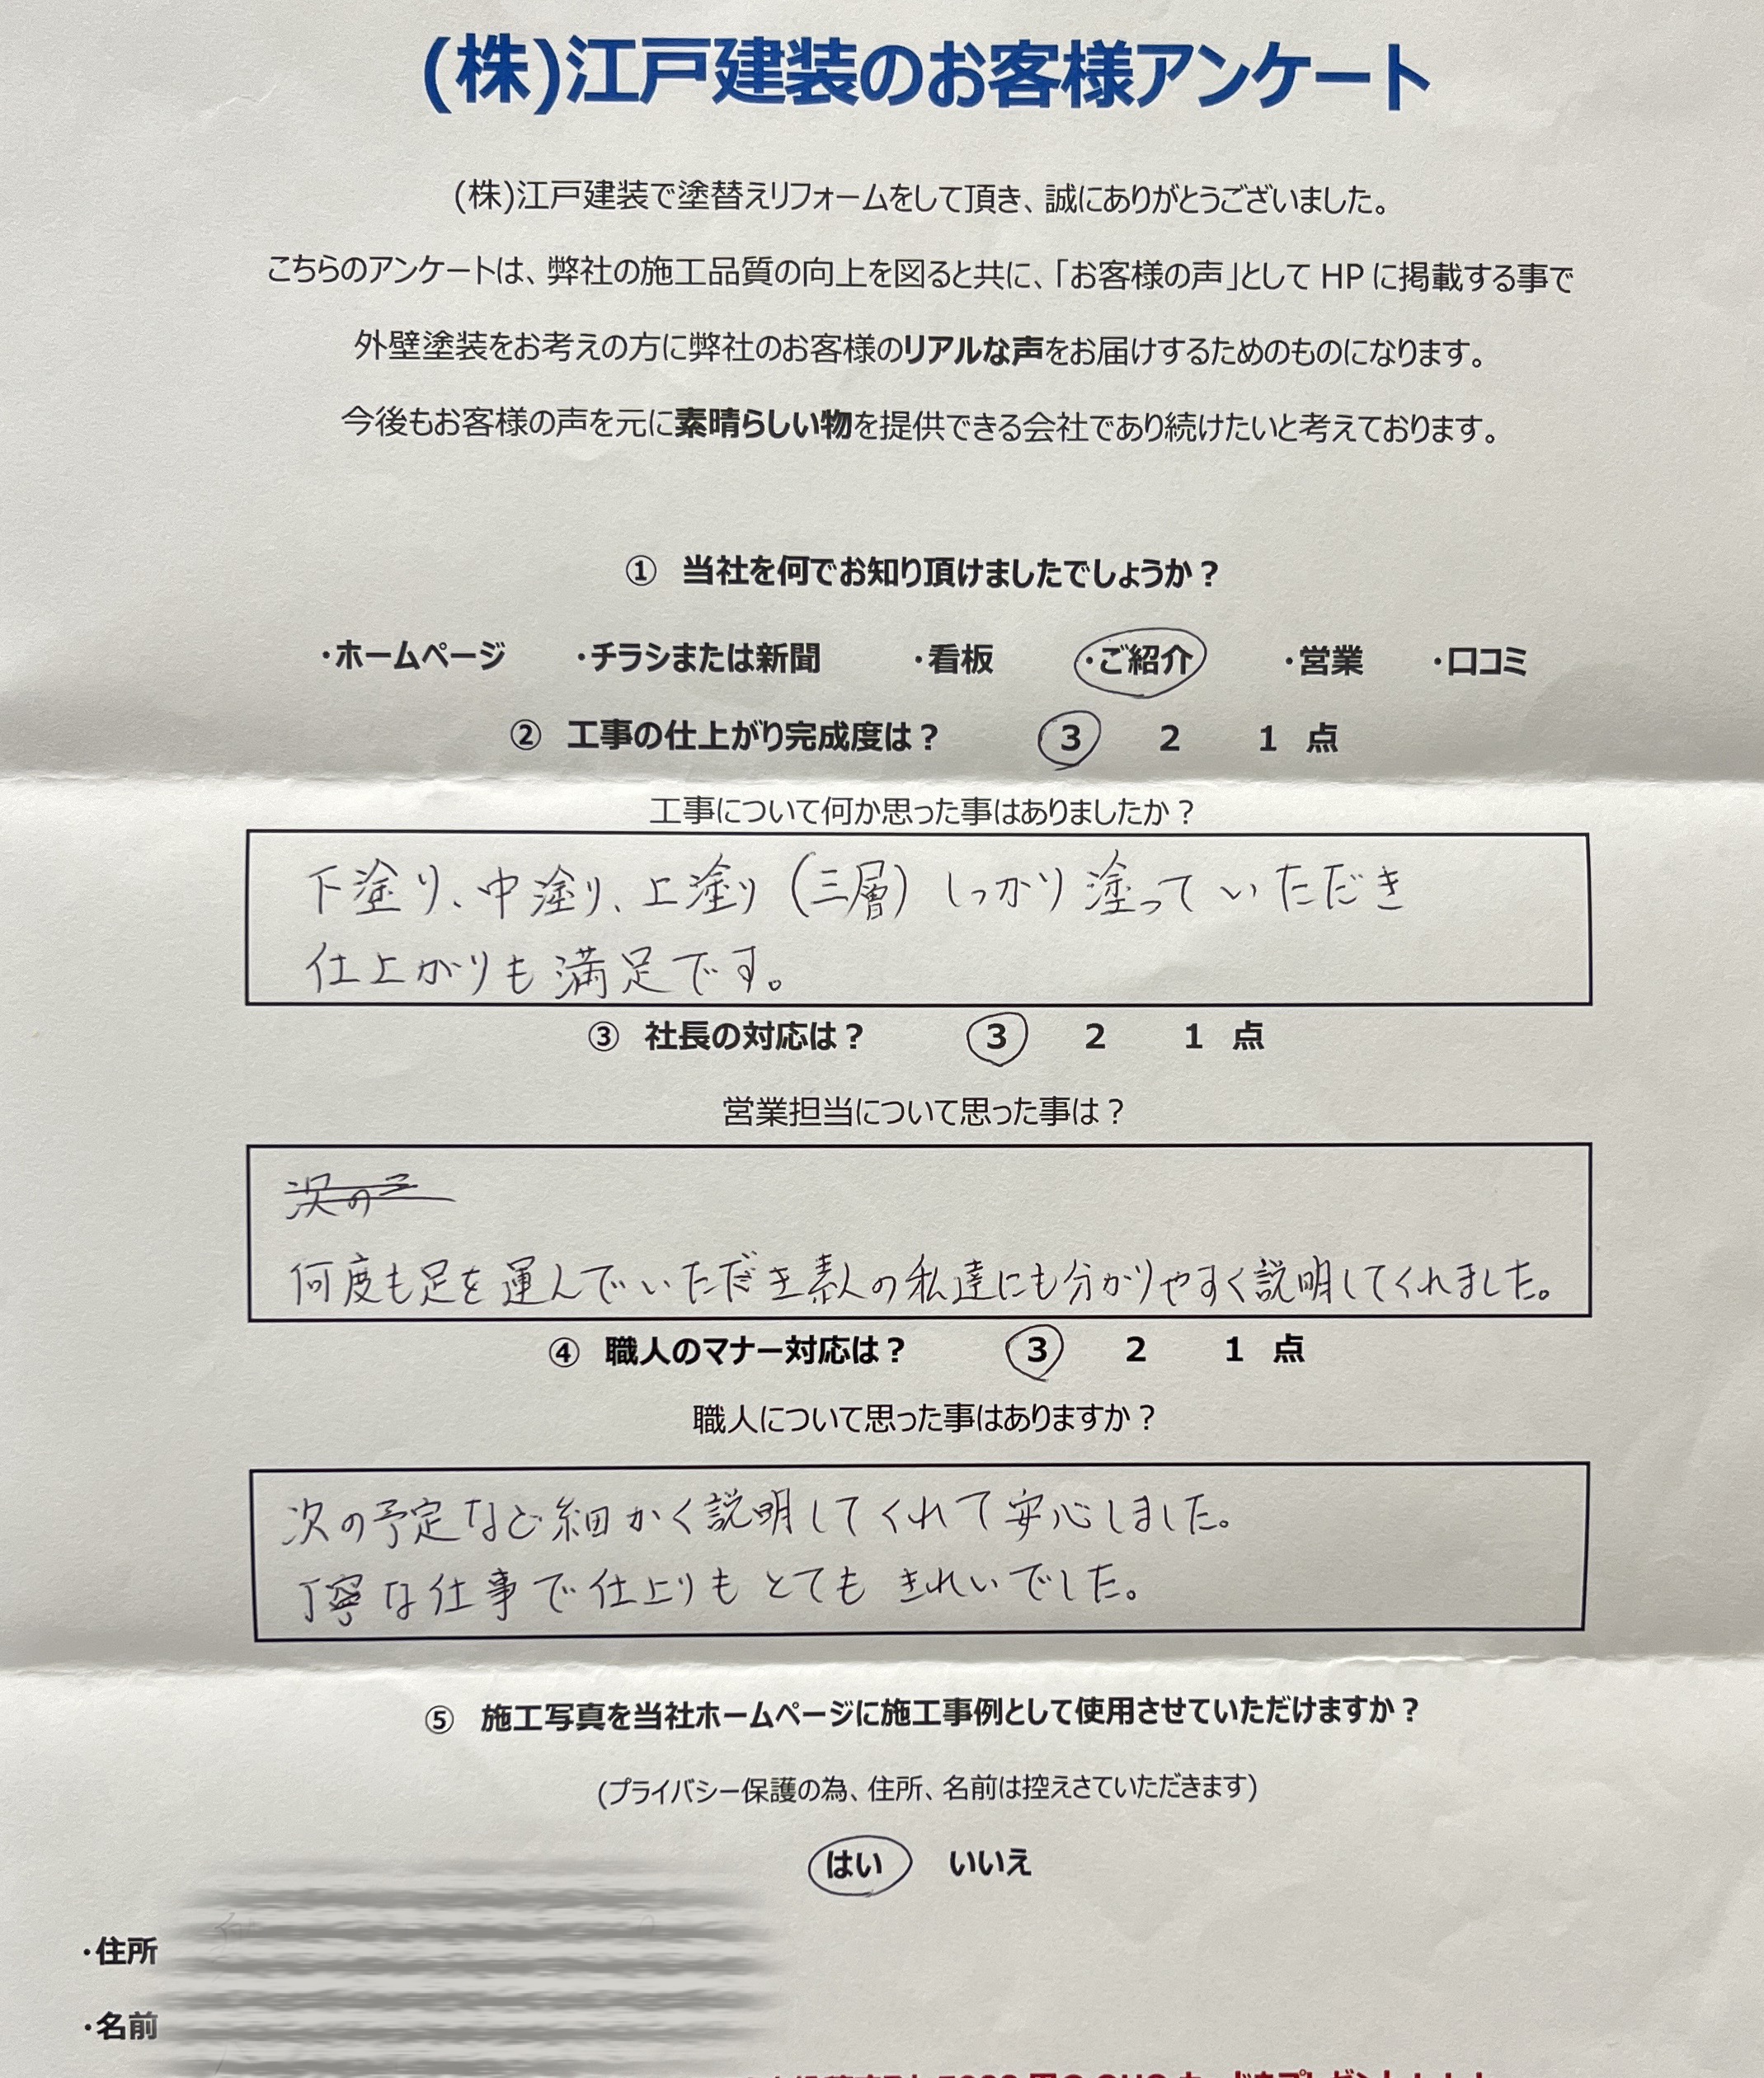 (株)江戸建装のお客様アンケート
(株)江戸建装で塗替えリフォームをして頂き、誠にありがとうございました。
こちらのアンケートは、弊社の施工品質の向上を図ると共に、「お客様の声」として HP に掲載する事で
外壁塗装をお考えの方に弊社のお客様のリアルな声をお届けするためのものになります。
今後もお客様の声を元に素晴らしい物を提供できる会社であり続けたいと考えております。
① 当社を何でお知り頂けましたでしょうか？
・ホームページ ・チラシまたは新聞 ・看板 ・ご紹介 ・営業 ・口コミ
② 工事の仕上がり完成度は？ 3 2 1 点
工事について何か思った事はありましたか？
下塗り、中塗り、上塗り（三層）しっかり塗っていただき
仕上がりも満足です。
③ 社長の対応は？ 3 2 1 点
営業担当について思った事は？
次の
何度も足を運んでいただき素人の私達にも分かりやすく説明してくれました。
④ 職人のマナー対応は？ 3 2 1 点
職人について思った事はありますか？
次の予定など細かく説明してくれて安心しました。
丁寧な仕事で仕上りもとてもきれいでした。
⑤ 施工写真を当社ホームページに施工事例として使用させていただけますか？
(プライバシー保護の為、住所、名前は控えさていただきます)
はい いいえ
・住所
・名前